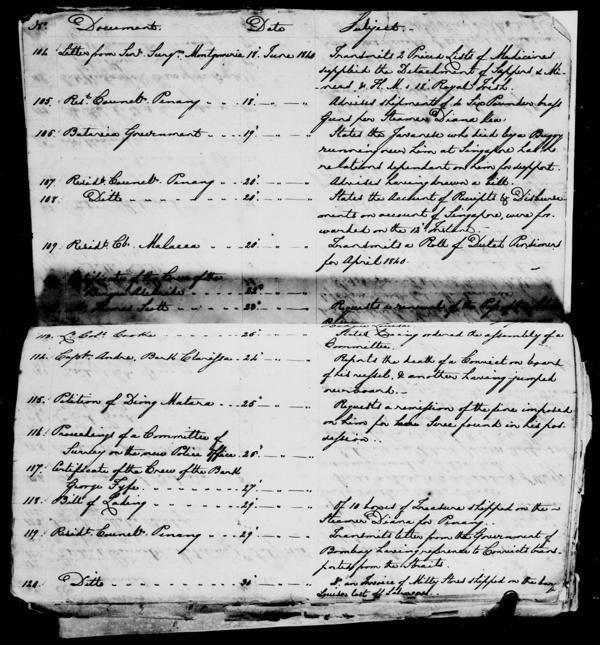 No. Document. Date Subject.
104. Letter from Senr. Surgn. Montgomerie 18' June 1840 Transmits 2 Priced Lists of Medicines
supplied the Detachment of Sappers & Mi-
ners & H. M.'s 18 Royal Irish.
105. Rest. Councr. Penang 18' Advises shipment of 4 Six Pounders brass
Guns per Steamer Diana
106. Batavia Government 19' States the Javanese who died by a Buggy
running over him at Singapore has no
relations dependent on him for support.
107. Residt. Councr. Penang 20' Advises having drawn a bill.
108. Ditto 20' States the Account of Receipts & Disburse-
ments on account of Singapore, were for-
warded on the 13' Instant.
109. Residt. Cr. Malacca 20' Transmits a Roll of Dutch Pensioners
for April 1840.
Certificate of the Crew of the
23'
Scott 23' Requests a renewal of the Pass of the
113. Lt. Colo. Cooke 25' States having ordered the assembly of a
Committee.
114. Captn. Andre, Bark Clarissa 24' Reports the death of a Convict on board
of his vessel, & another having jumped
overboard.
115. Petition of Ding Matera 25' Requests a remission of the fine imposed
on him for Siree found in his pos-
session.
116. Proceedings of a Committee of
Survey on the new Police Office 26'
117. Certificate of the Crew of the Bark
George Fyfe 27'
118. Bill of Lading 29' Of 10 boxes of Treasure shipped on the
Steamer Diana for Penang.
119. Residt. Councr. Penang 29' Transmits letter from the Government of
Bombay having reference to Convicts trans-
ported from the Straits.
120. Ditto 30' & an Invoice of Milty. Stores shipped on the
Louisa lost off